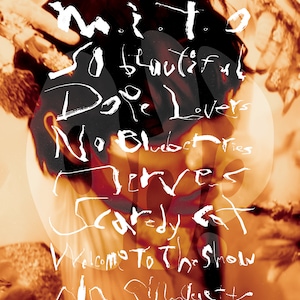 m.i.t.o
So beautiful
Dope Lovers
No Blueberries
Nerves
Scaredy cat
Welcome To The Show